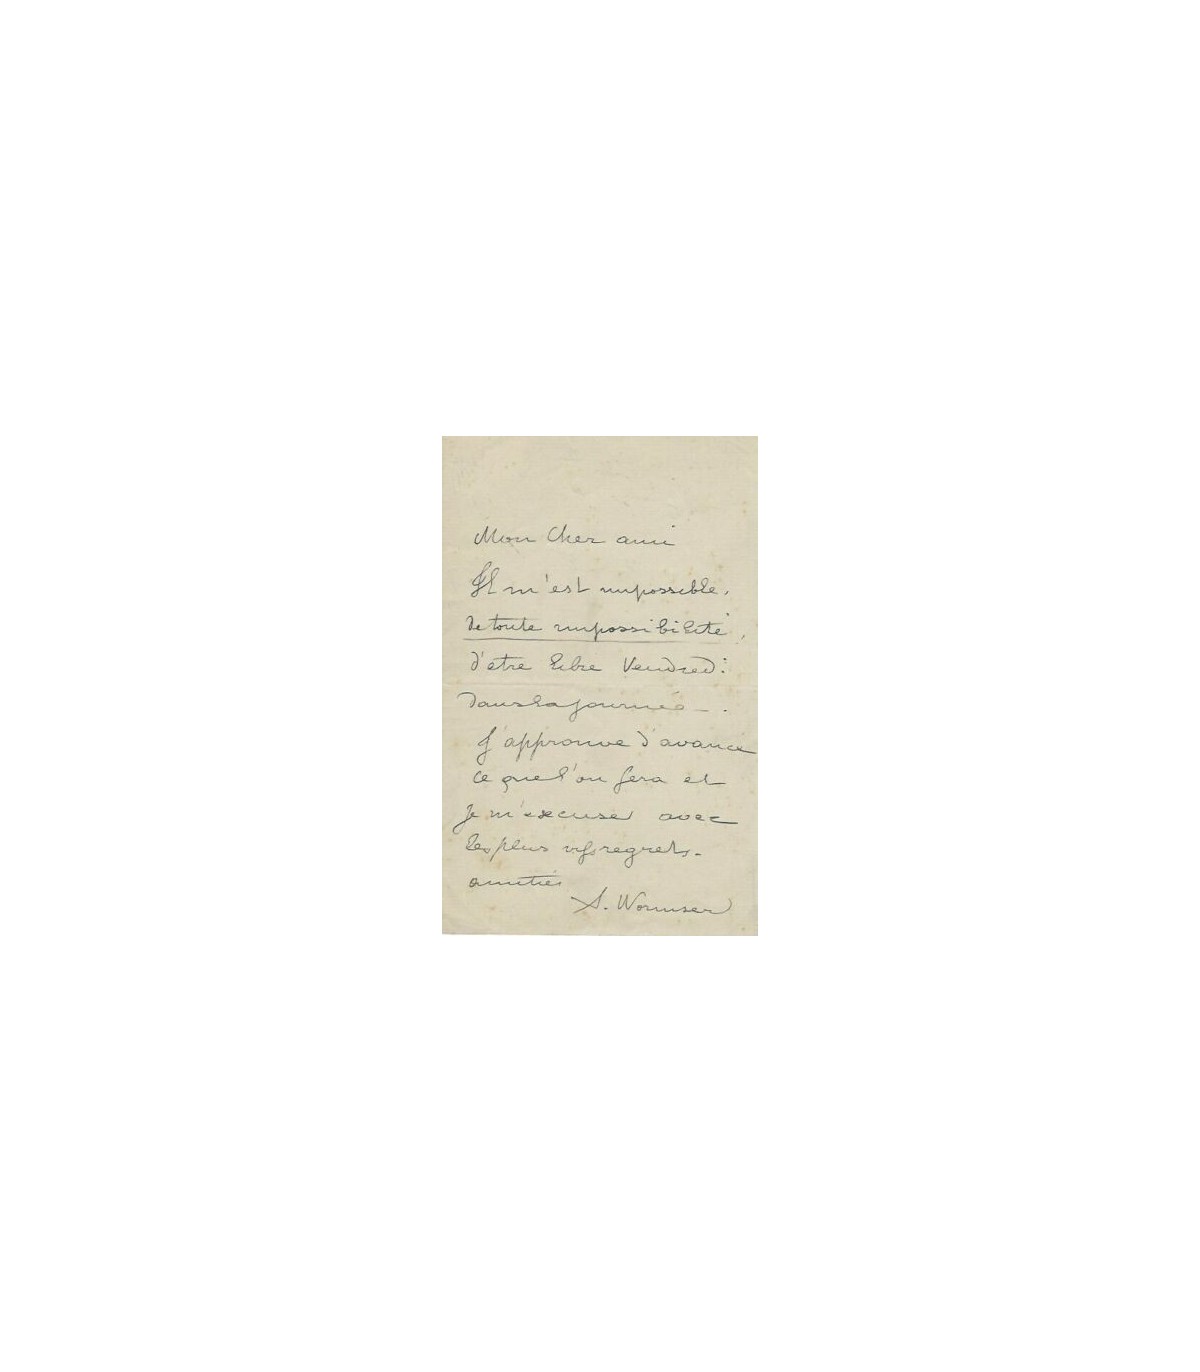 Mon Cher ami
Il m'est impossible,
de toute impossibilité,
d'etre libre Vendredi
dans la journée -.
J'approuve d'avance
ce que l'on fera et
je m'excuse avec
les plus vifs regrets -
amitiés
A. Wormser